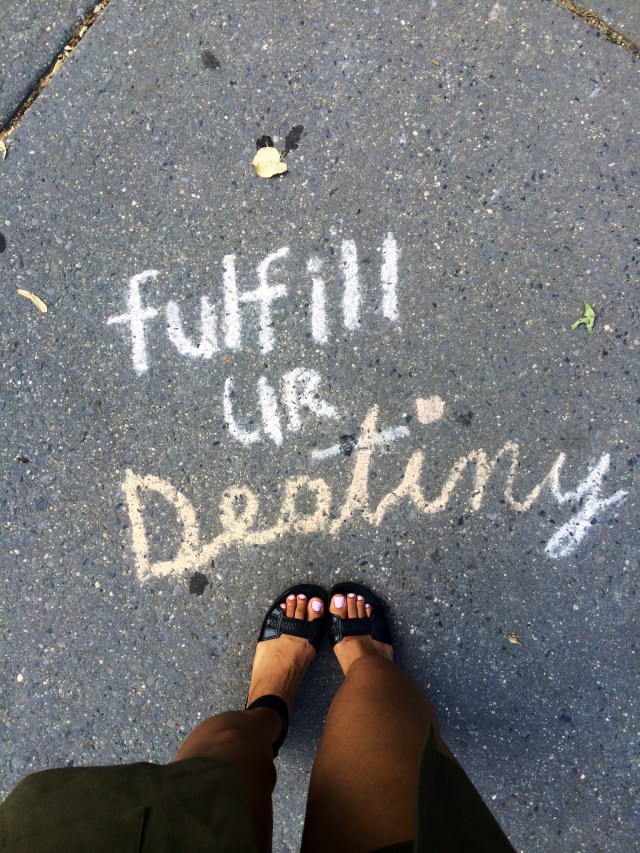 fulfill
UR
Destiny